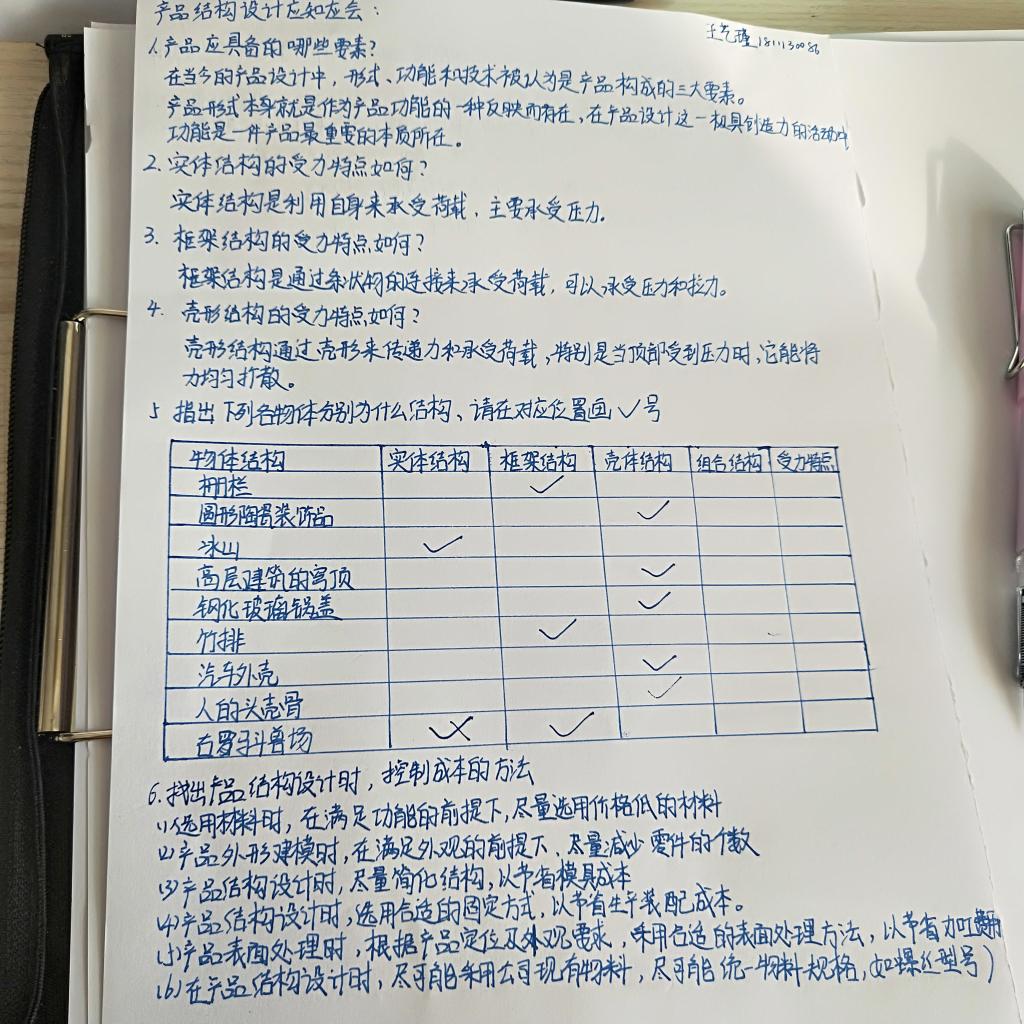 产品结构设计应知应会：
王艺瑾 181130086
1.产品应具备的哪些要素?
在当今的产品设计中，形式、功能和技术被认为是产品构成的三大要素。
产品形式本身就是作为产品功能的一种反映而存在，在产品设计这一极具创造力的活动中
功能是一件产品最重要的本质所在。
2.实体结构的受力特点如何?
实体结构是利用自身来承受荷载，主要承受压力。
3.框架结构的受力特点如何?
框架结构是通过条状物的连接来承受荷载，可以承受压力和拉力。
4.壳形结构的受力特点如何?
壳形结构通过壳形来传递力和承受荷载，特别是当顶部受到压力时，它能将
力均匀扩散。
5 指出下列各物体分别为什么结构、请在对应位置画✓号
物体结构 实体结构 框架结构 壳体结构 组合结构 受力特点
栅栏 ✓
圆形陶瓷装饰品 ✓
冰山 ✓
高层建筑的穹顶 ✓
钢化玻璃锅盖 ✓
竹排 ✓
汽车外壳 ✓
人的头壳骨 ✓
古罗马斗兽场 ✓
6.找出产品结构设计时，控制成本的方法
(1)选用材料时，在满足功能的前提下，尽量选用价格低的材料
(2)产品外形建模时，在满足外观的前提下、尽量减少零件的个数
(3)产品结构设计时，尽量简化结构，以节省模具成本
(4)产品结构设计时，选用合适的固定方式，以节省生产装配成本。
(5)产品表面处理时，根据产品定位及外观要求，采用合适的表面处理方法，以节省加工费用
(6)在产品结构设计时，尽可能采用公司现有物料，尽可能统一物料规格，如螺丝型号）